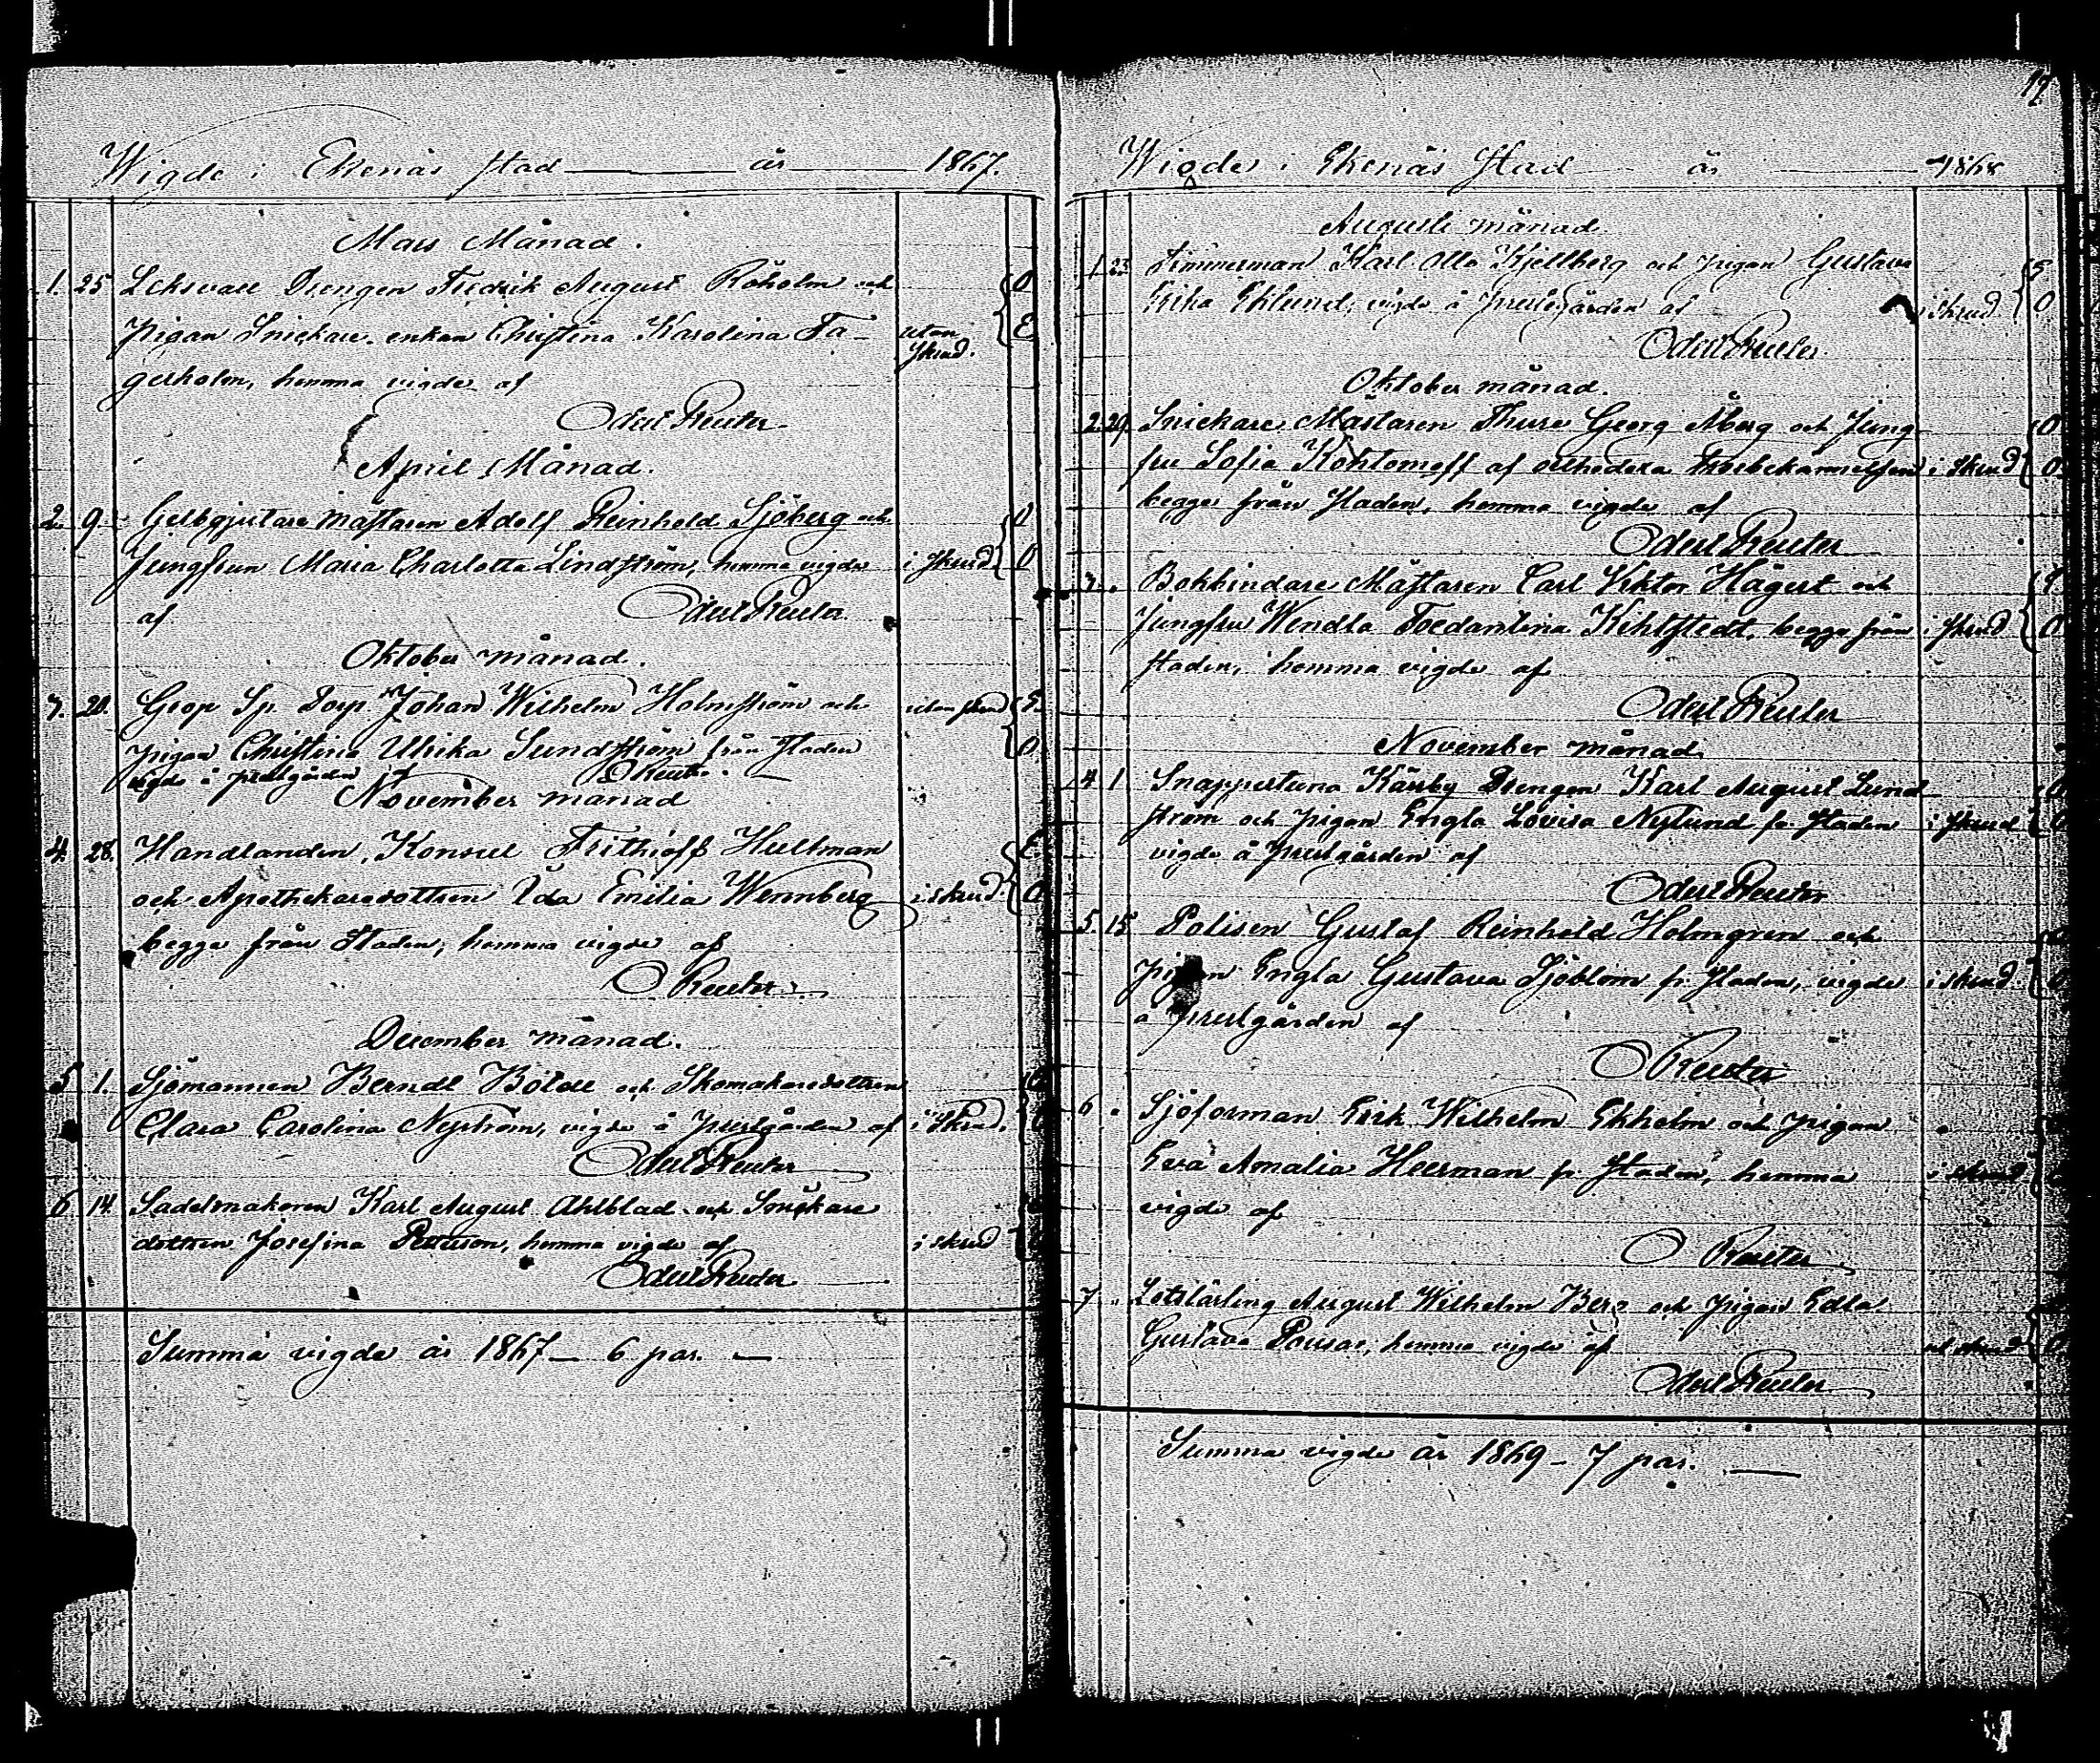 Wigde i Ekenäs stad år 1867.
Mars Månad.
1. 25 Leksvall Drengen Fredrik August Röholm och O
pigan Snickare enkan Christina Karolina Fa- utan skrud. E
gerholm, hemma vigde af
Odert Reuter
April Månad.
2. 9. Gelbgjutare mästaren Adolf Reinhold Sjöberg och O
Jungfrun Maria Charlotta Lindström, hemma vigde i skrud O
af Odert Reuter
Oktober månad.
3. 20. Johan Wilhelm Holmström och utan skrud E
pigan Christina Ulrika Sundström från staden O
vigde i prestgården O Reuter.
November månad
4. 28. Handlanden, Konsul Frithioff Hultman E
och Apothekaredottren Ida Emilia Wennberg i skrud O
begge från staden, hemma vigde af
O Reuter
December månad.
5 1. Sjömannen Berndt Boldt och Skomakaredottren O
Clara Carolina Nyström, vigde å prestgården af i skrud.
Odert Reuter
6 14. Sadelmakaren Karl August Ahlblad och Snickare
dottren Josefina Petterson, hemma vigde af i skrud
Odert Reuter
Summa vigde år 1867 — 6 par. —
17
Wigde i Ekenäs stad år 1868
Augusti månad
1. 23. Timmerman Karl Otto Kjellberg och pigan Gustava E
Erika Eklund, vigde å prestgården af i skrud O
Odert Reuter
Oktober månad.
2. 29. Snickare Mästaren Thure Georg Åberg och Jung O
fru Sofia af orthodoxa trosbekännelsen i skrud O
begge från staden, hemma vigde af
Odert Reuter
3. " Bokbindare Mästaren Carl Viktor Hägert och E
Jungfru Wendla Kihlstedt, begge från i skrud O
staden, hemma vigde af
Odert Reuter
November månad.
4 1 Snappertuna Kärrby Drengen Karl August Lund O
ström och pigan Engla Lovisa Nylund fr. staden i skrud
vigde å prestgården af
Odert Reuter
5. 15 Polisen Gustaf Reinhold Holmgren och
pigan Engla Gustava Sjöblom fr. staden, vigde i skrud O
å prestgården af
O Reuter
6 " Sjöforman Erik Wilhelm Ekholm och pigan
Eva Amalia Heerman fr. staden, hemma i skrud
vigde af
O Reuter
7 " Lotslärling August Wilhelm Berg och pigan Edla
Gustava Pousar, hemma vigde af ut. skrud O
Odert Reuter
Summa vigde år 1869 — 7 par. —